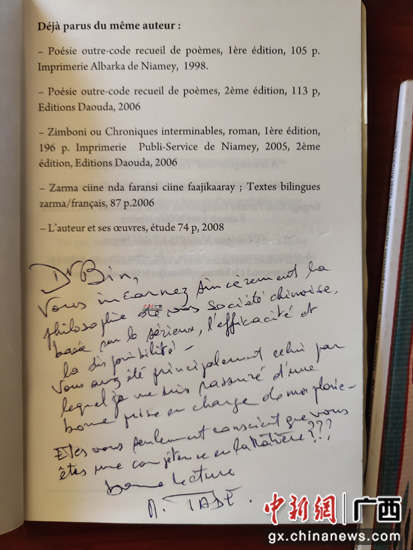 Déjà parus du même auteur :
– Poésie outre-code recueil de poèmes, 1ère édition, 105 p.
Imprimerie Albarka de Niamey, 1998.
– Poésie outre-code recueil de poèmes, 2ème édition, 113 p,
Editions Daouda, 2006
– Zimboni ou Chroniques interminables, roman, 1ère édition,
196 p. Imprimerie Publi-Service de Niamey, 2005, 2ème
édition, Editions Daouda, 2006
– Zarma ciine nda faransi ciine faajikaaray ; Textes bilingues
zarma/français, 87 p.2006
– L'auteur et ses œuvres, étude 74 p, 2008
Dr Bin,
Vous incarnez sincèrement la
philosophie société chinoise,
basée sur le sérieux, l'efficacité et
la disponibilité –
Vous avez été principalement celui par
lequel je me suis rassuré d'une
bonne prise en charge de ma plaie –
Etes vous seulement conscient que vous
êtes une compétence en la matière ???
bonne lecture
中新网 广西
gx.chinanews.com.cn